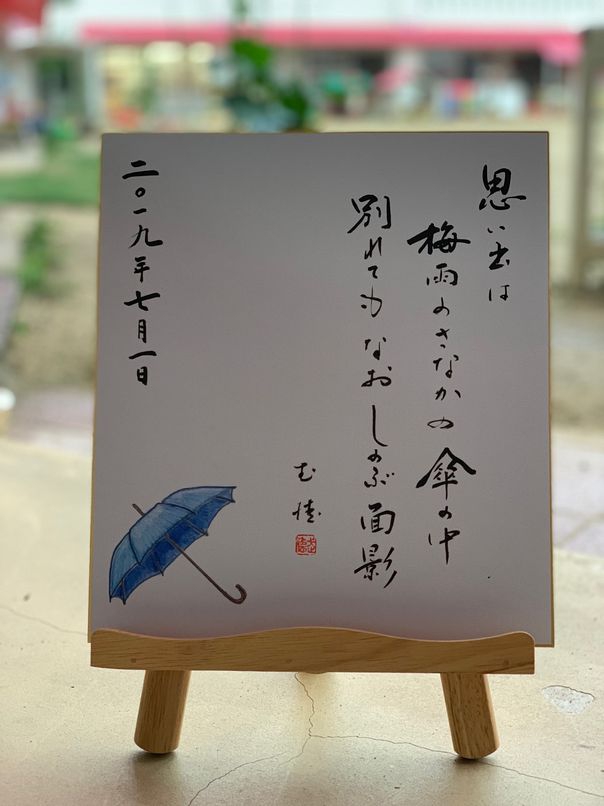 思い出は
梅雨のさなかの傘の中
別れてもなおしのぶ面影
二〇一九年七月一日